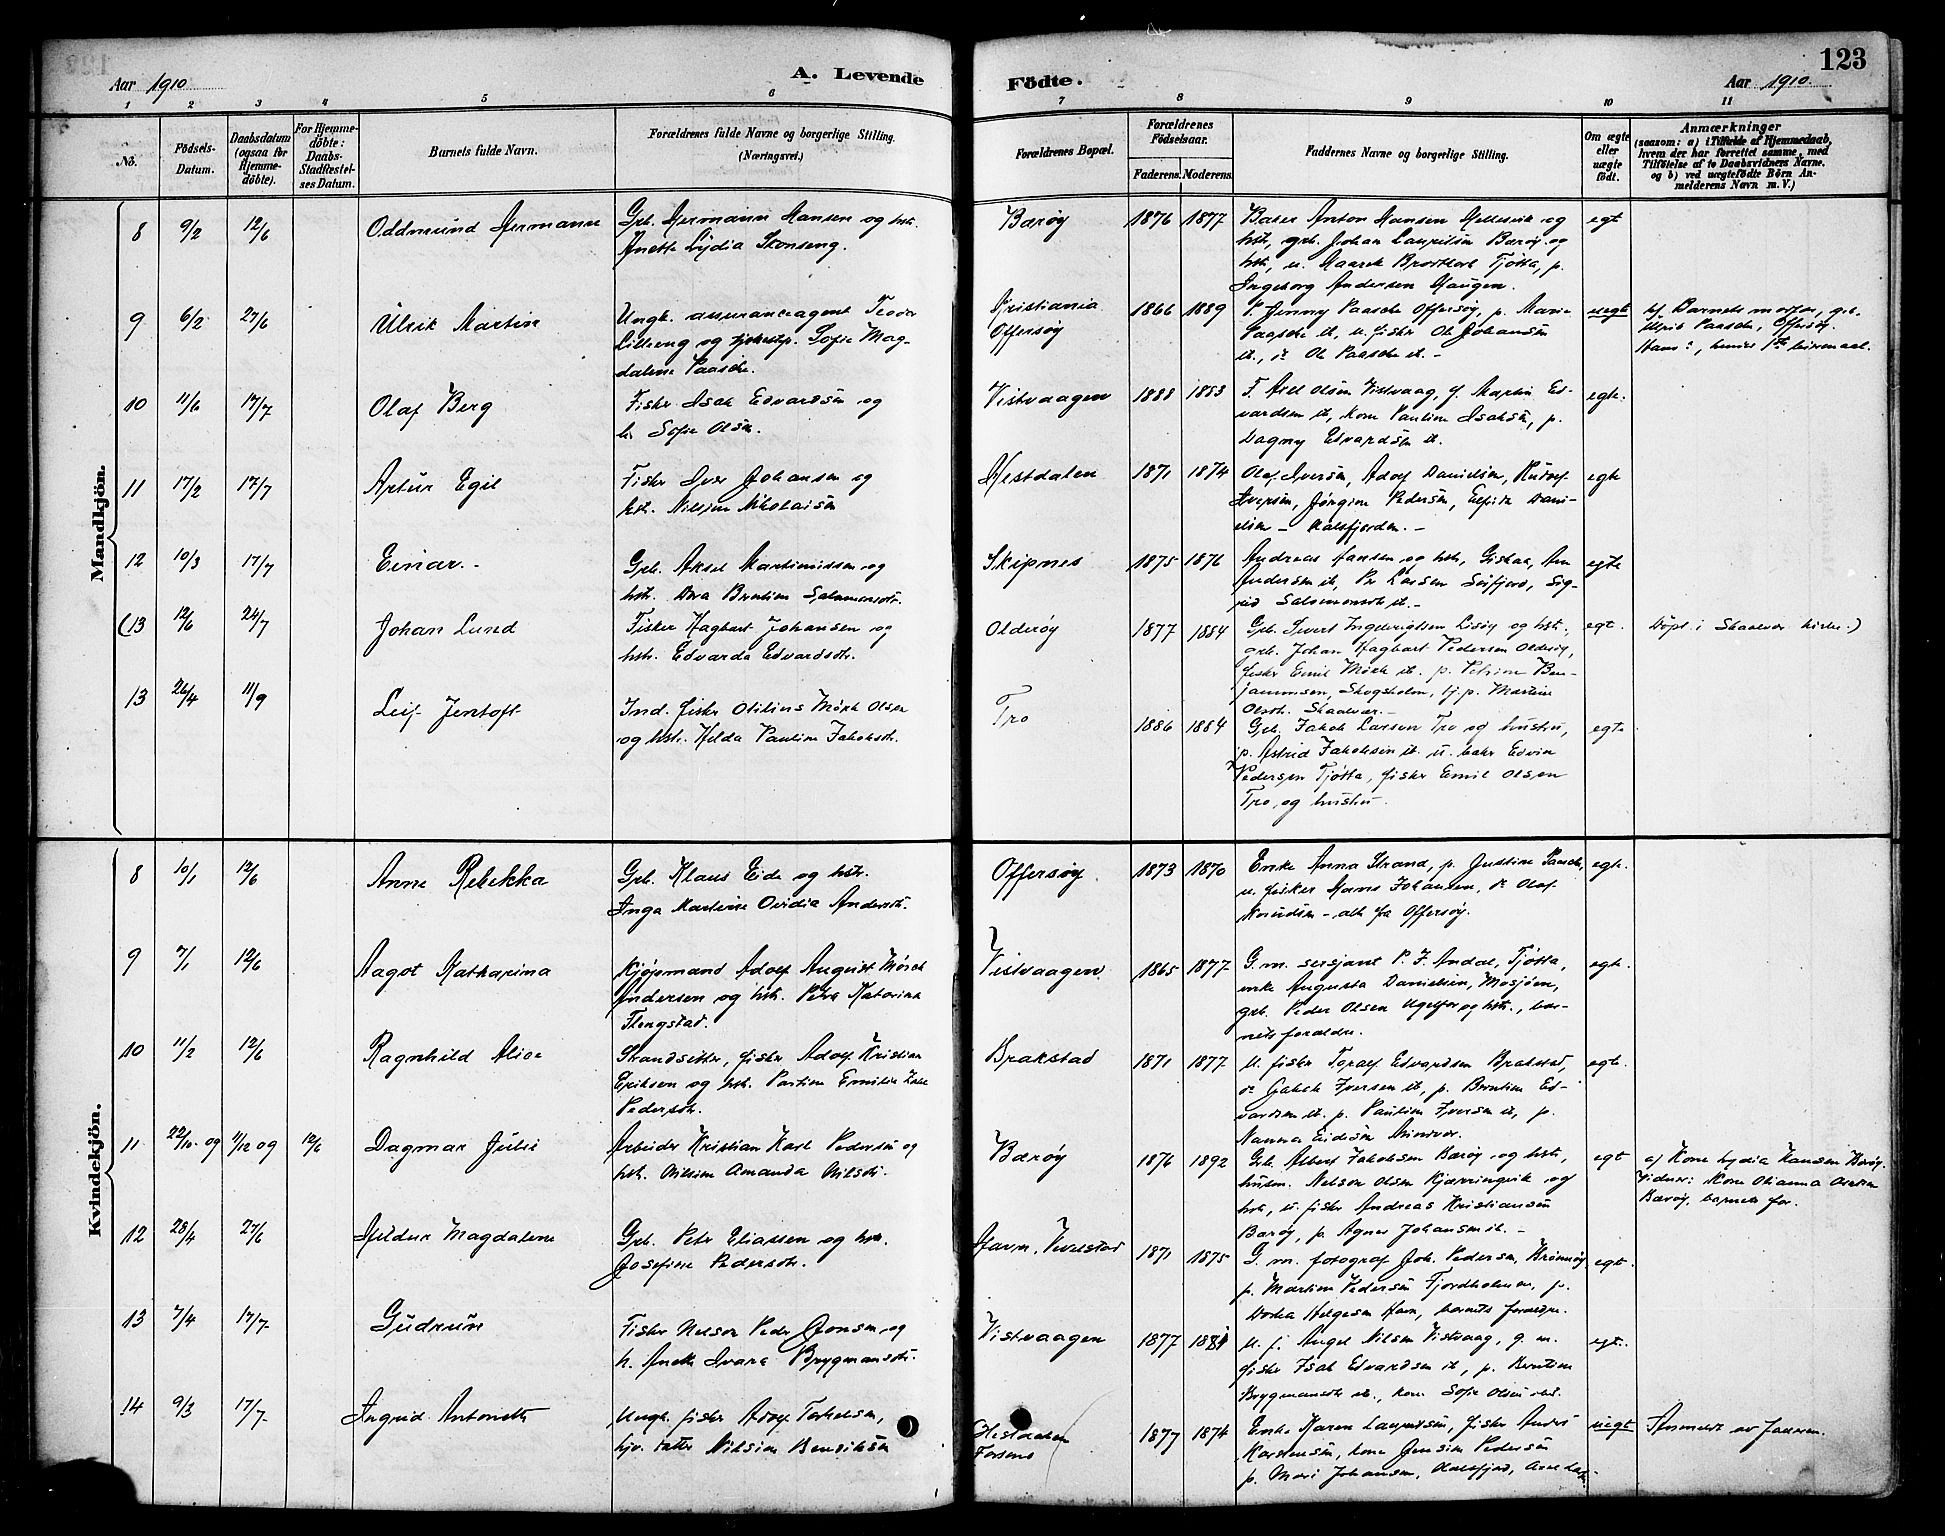 123
Aar 1910.
A. Levende
Födte.
Aar 1910.
1 2 3 4 5 6 7 8 9 10 11
No.
Födsels-
Datum.
Daabsdatum
(ogsaa for
Hjemme-
døbte).
For Hjemme-
döbte:
Daabs-
Stadfæstel-
ses Datum.
Barnets fulde Navn.
Forældrenes fulde Navne og borgerlige Stilling.
(Næringsvei.)
Forældrenes Bopæl.
Forældrenes
Födselsaar.
Faderens. Moderens.
Faddernes Navne og borgerlige Stilling.
Om ægte
eller
uægte
født.
Anmærkninger
(saasom: a) i Tilfælde af Hjemmedaab,
hvem der har forrettet samme, med
Tilföielse af to Daabsvidners Navne,
og b) ved uægtefödte Börn An-
melderens Navn m. V.)
Mandkjön.
8 9/2 12/6 Oddmund Hermann
Grb. Hermann Hansen og hst.
Anette Lydia Stenseng.
Barøy 1876 1877
Baker Anton Hansen Hellesvik og
hst, grb. Johan Lauritsen Barøy og
hst, u. Haarek Brodtkorb Tjøtta, p.
Ingeborg Andersen Haugen.
egt
9 6/2 27/6 Ulrik Martin
Ungk. assuranceagent Teodor
Lilleeng og tjenestp. Sofie Mag-
dalene Paasche.
Kristiania
Offersøy
1866 1889
P. Jenny Paasche Offersøy, p. Marie
Paasche it, u. fisker Ole Johansen
it., do Ole Paasche it. -
uegt
bf. Barnets morfar, grb.
Ulrik Paasche, Offersøy.
Hans ?, hendes 1ste leiermaal.
10 11/6 17/7 Olaf Berg
Fisker Isak Edvardsen og
h. Sofie Olsen.
Vistvaagen 1888 1883
F. Axel Olsen Vistvaag, f. Martin Ed-
vardsen it, kone Pauline Isaksen, p.
Dagny Edvardsen it.
egte.
11 17/2 17/7 Artur Egil
Fisker Iver Johansen og
hst. Nilsine Nikolaisen
Hestdalen 1871 1874
Olaf Iversen, Adolf Danielsen, Rudolf
Iversen, Jørgine Pedersen, Elfride Dani-
elsen - Halsfjorden. -
egte
12 10/3 17/7 Einar. -
Grb. Aksel Martinussen og
hst. Dora Berntine Salamonsdtr.
Skipnes 1875 1876
Andreas Hansen og hst, Giskaa, Ane
Andersen it, Per Larsen Seifjord, Sig-
rid Salomonsdtr it. -
egte
(13 12/6 24/7 Johan Lund
Fisker Hagbart Johansen og
hst. Edvarda Edvardsdtr.
Olderøy 1877 1884
Grb. Sivert Ingebrigtsen Lisøy og hst.,
grb. Johan Hagbart Pedersen Olderøy,
fisker Emil Mørk it. p. Petrine Ben-
jaminsen, Skogsholm, tj. p. Martine
Olsdtr. Skaalvær. -
egt.
Døpt i Skaalvær kirke.)
13 26/4 11/9 Leif Jentoft
Ind. fisker Otilius Mørk Olsen
og hst. Hilda Pauline Jakobsdtr.
Tro 1886 1884
Grb. Jakob Larsen Tro og hustru,
p. Astrid Jakobsen it. u. baker Edvin
Pedersen Tjøtta, fisker Emil Olsen
Tro, og hustru.
egte
Kvindekjön.
8 10/1 12/6 Anne Rebekka
Grb. Klaus Eide og hst.
Inga Martine Ovidia Andersdtr.
Offersøy. 1873 1870
Enke Anna Strand, p. Justine Paasche,
u. fisker Hans Johansen, do Olaf
Knudsen - alle fra Offersøy.
egte.
9 7/1 12/6 Aagot Katharina
Kjøpmand Adolf August Mørch
Andersen og hst. Petra Katarina
Flengstad.
Vistvaagen. 1865 1877
G. m. sersjant P. J. Andal, Tjøtta,
enke Augusta Danielsen, Mosjøen,
grb. Peder Olsen Ugelfor og hst., bar-
nets forældre.
egte.
10 11/2 12/6 Ragnhild Alice
Strandsitter, fisker Adolf Kristian
Eriksen og hst. Pauline Emilie
Pedersdtr.
Brakstad 1871 1877
U. fisker Toralf Edvardsen Brakstad,
do Jakob Iversen it, p. Berntine Ed-
vardsen it. p. Pauline Iversen it, p.
Nanna Eidesen Mindvær.
egte.
11 22/10 og 11/12 og 12/6 Dagmar Julie
Arbeider Kristian Karl Pedersen og
hst. Nilsine Amanda Nilsdtr.
Barøy 1876 1892
Grb. Albert Jakobsen Barøy og hst,
husm. Nelson Olsen Kjærringvik og
hst, u. fisker Andreas Kristiansen
Barøy, p. Agnes Johansen it. -
egt
a) Kone Lydia Hansen Barøy.
Vidner: Kone Olianna
Barøy, barnets far.
12 28/4 27/6 Hildur Magdalene
Grb. Peter Eliassen og hst.
Josefine Pedersdtr.
Havn, Vevelstad 1871 1875
G. m. fotograf Joh. Pedersen, Brønnøy,
p. Martine Pedersen Fjordholmen, p.
Dorka Helgesen Havn, barnets forældre.
egt.
13 7/4 17/7 Gudrun
Fisker Nelson Peder Jonsen og
h. Anette Ivara Brygmansdtr.
Vistvaagen 1877 1881
U. f. Angel Nilsen Vistvaag, g. m.
fisker Isak Edvardsen it, p. Berntine
Brygmansdtr it., kone Sofie Olsen ibid.
egt.
14 9/3 17/7 Ingrid Antonette
Ungk. fisker Adolf Torkelsen,
hjv. datter Nilsine Benriksen
Hestdalen
Forsnes
1877 1874
Enke Karen Lauritsen, fisker Anders
Karstensen, kone Jensine Pedersen
p. Mari Johansen, Halsfjord,
uegt
Anmeldt av faderen.